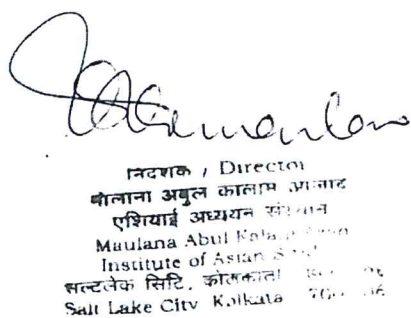 निदेशक / Director
मौलाना अबुल कालाम आजाद
एशियाई अध्ययन संस्थान
Maulana Abul Kala
Institute of Asian
सल्टलेक सिटि, कोलकाता
Salt Lake City Kolkata